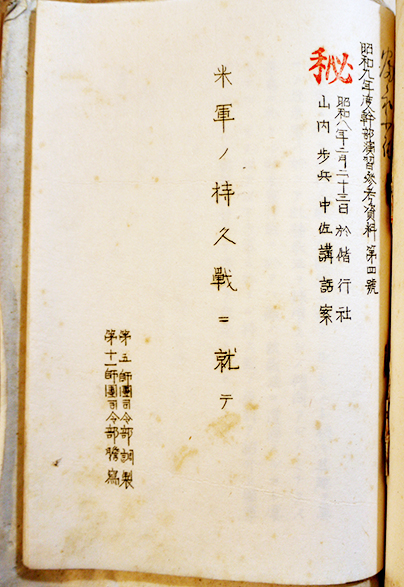 昭和九年度幹部演習参考資料第四號
秘
昭和八年二月二十三日於偕行社
山内歩兵中佐講話案
米軍ノ持久戰ニ就テ
第五師團司令部調製
第十一師團司令部謄寫